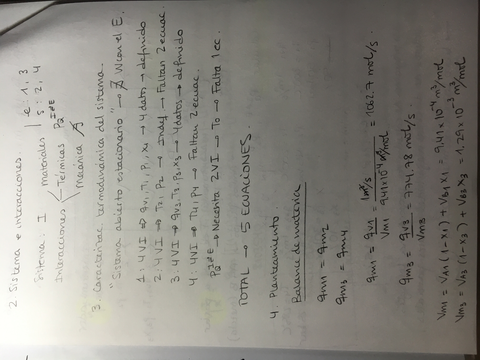 2. Sistema e interacciones.
Sistema: I | e: 1, 3
Interacciones Materiales | s: 2, 4
Térmicas PQ I≠E
Mecánica
3. Caracterizac. termodinámica del sistema.
"Sistema abierto estacionario" → W con el E.
1: 4VI → qv1, T1, P1, x1 → 4 datos → definido
2: 4VI → T2, P2 → Indef → Faltan 2 ecuac.
3: 4VI → qv3, T3, P3, x3 → 4 datos → definido
4: 4VI → T4, P4 → Faltan 2 ecuac.
PQ I≠E → Necesita 2VI → T0 → Falta 1 ec.
TOTAL → 5 ECUACIONES
4. Planteamiento
Balance de materia
qm1 = qm2
qm3 = qm4
qm1 = qv1 / Vm1 = 1 m³/s / 9'41·10⁻⁴ m³/mol = 1062.7 mol/s
qm3 = qv3 / Vm3 = 774.98 mol/s
Vm1 = VA1 (1-x1) + VB1 x1 = 9,41×10⁻⁴ m³/mol
Vm3 = VA3 (1-x3) + VB3 x3 = 1.29×10⁻³ m³/mol